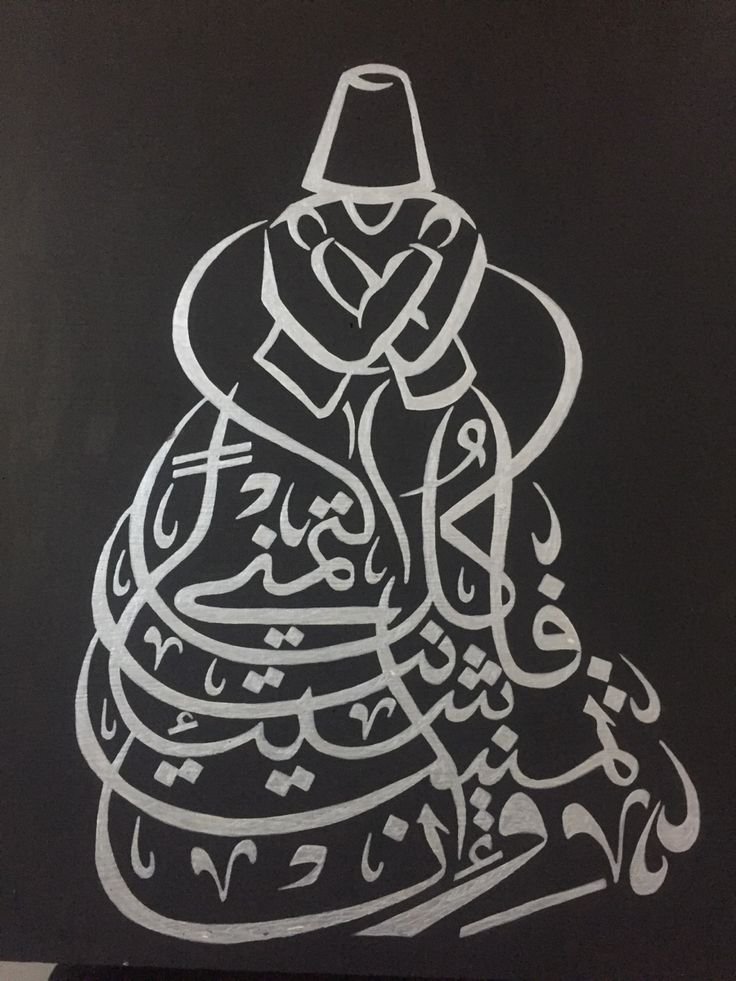 وإن تمنيت شيئًا
فانت كل التمني